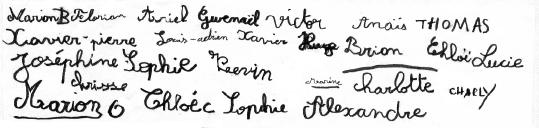 Marion B Florian Avriel Gwenaël Victor Anaïs THOMAS
Xavier-pierre Louis-adrien Xavier Hugo Brian Chloï Lucie
Joséphine Sophie Kevin Marine Charlotte CHARLY
Chrisse
Marion O Chloéc Sophie Alexandre